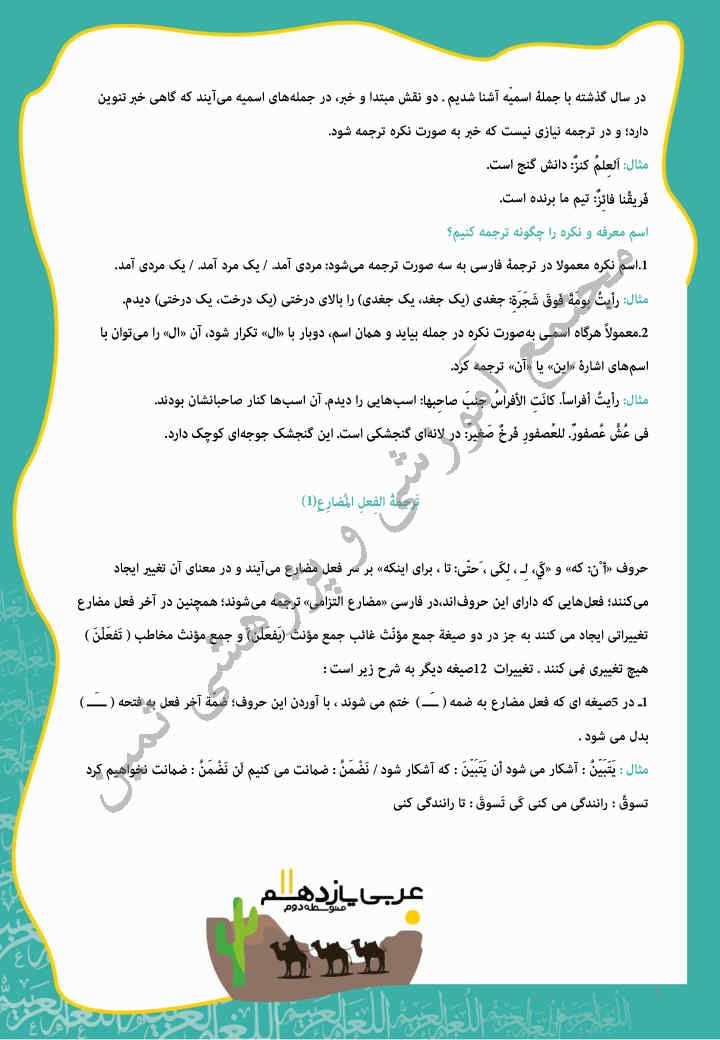 در سال گذشته با جملهٔ اسمیّه آشنا شدیم . دو نقش مبتدا و خبر، در جمله‌های اسمیه می‌آیند که گاهی خبر تنوین
دارد؛ و در ترجمه نیازی نیست که خبر به صورت نکره ترجمه شود.
مثال: اَلعِلمُ کنزٌ: دانش گنج است.
فَریقُنا فائِزٌ: تیم ما برنده است.
اسم معرفه و نکره را چگونه ترجمه کنیم؟
1.اسم نکره معمولا در ترجمهٔ فارسی به سه صورت ترجمه می‌شود: مردی آمد. / یک مرد آمد. / یک مردی آمد.
مثال: رأیتُ بومَةً فَوقَ شَجَرَةٍ: جغدی (یک جغد، یک جغدی) را بالای درختی (یک درخت، یک درختی) دیدم.
2.معمولاً هرگاه اسمی به‌صورت نکره در جمله بیاید و همان اسم، دوبار با «ال» تکرار شود، آن «ال» را می‌توان با
اسم‌های اشارهٔ «این» یا «آن» ترجمه کرد.
مثال: رأیتُ أفراساً. کانَتِ الأفراسُ جَنبَ صاحِبِها: اسب‌هایی را دیدم. آن اسب‌ها کنار صاحبانشان بودند.
فی عُشِّ عُصفورٌ. للعُصفورِ فَرخٌ صَغیر: در لانه‌ای گنجشکی است. این گنجشک جوجه‌ای کوچک دارد.
تَرجِمَةُ الفِعلِ المُضارِع(1)
حروف «أَنْ: که» و «کَي، لِـ ، لِکَی ، حَتّی: تا ، برای اینکه» بر سر فعل مضارع می‌آیند و در معنای آن تغییر ایجاد
می‌کنند؛ فعل‌هایی که دارای این حروف‌اند،در فارسی «مضارع التزامی» ترجمه می‌شوند؛ همچنین در آخر فعل مضارع
تغییراتی ایجاد می کنند به جز در دو صیغهٔ جمع مؤنّث غائب جمع مؤنث (یَفعَلْنَ) و جمع مؤنث مخاطب ( تَفعَلْنَ )
هیچ تغییری نمی کنند . تغییرات 12صیغه دیگر به شرح زیر است :
1ـ در 5صیغه ای که فعل مضارع به ضمه ( ـُـ ) ختم می شوند ، با آوردن این حروف؛ ضمّهٔ آخر فعل به فتحه ( ـَـ )
بدل می شود .
مثال : یَتَبَیّنُ : آشکار می شود أن یَتَبَیّنَ : که آشکار شود / نَضْمَنُ : ضمانت می کنیم لَن نَضْمَنُ : ضمانت نخواهیم کرد
تسوقُ : رانندگی می کنی کَی تَسوقَ : تا رانندگی کنی
مجتمع آموزشی و پژوهشی ثمین
عربی یازدهم
متوسطه دوم
اللغة العربية